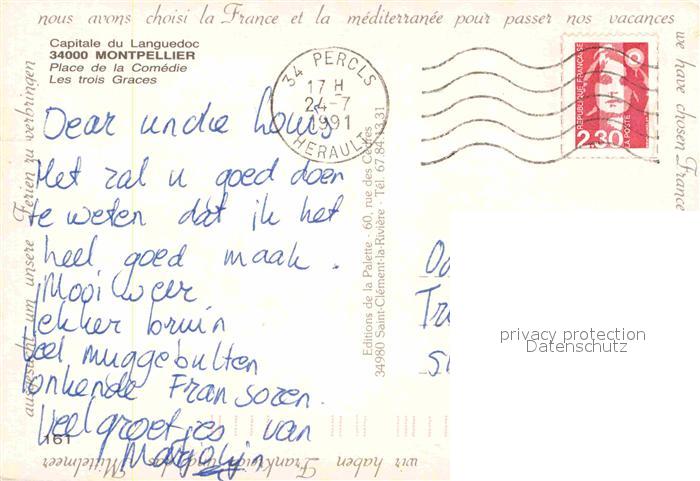 nous avons choisi la France et la méditerranée pour passer nos vacances
Capitale du Languedoc
34000 MONTPELLIER
Place de la Comédie
Les trois Graces
34 PEROLS
17 H
24-7
1991
HERAULT
REPUBLIQUE FRANÇAISE
2,30
LA POSTE
we have chosen France
Dear uncle Louis
Het zal u goed doen
te weten dat ik het
heel goed maak.
Mooi weer
lekker bruin
Veel muggebulten
lonkende Fransozen.
Veel groetjes van
Marjolijn
161
Editions de la Palette - 60, rue des Cèdres
34980 Saint-Clément-la-Rivière - Tél. 67.84.13.31
privacy protection
Datenschutz
wir haben Frankreich
Mittelmeer
ausgesucht um unsere Ferien zu verbringen